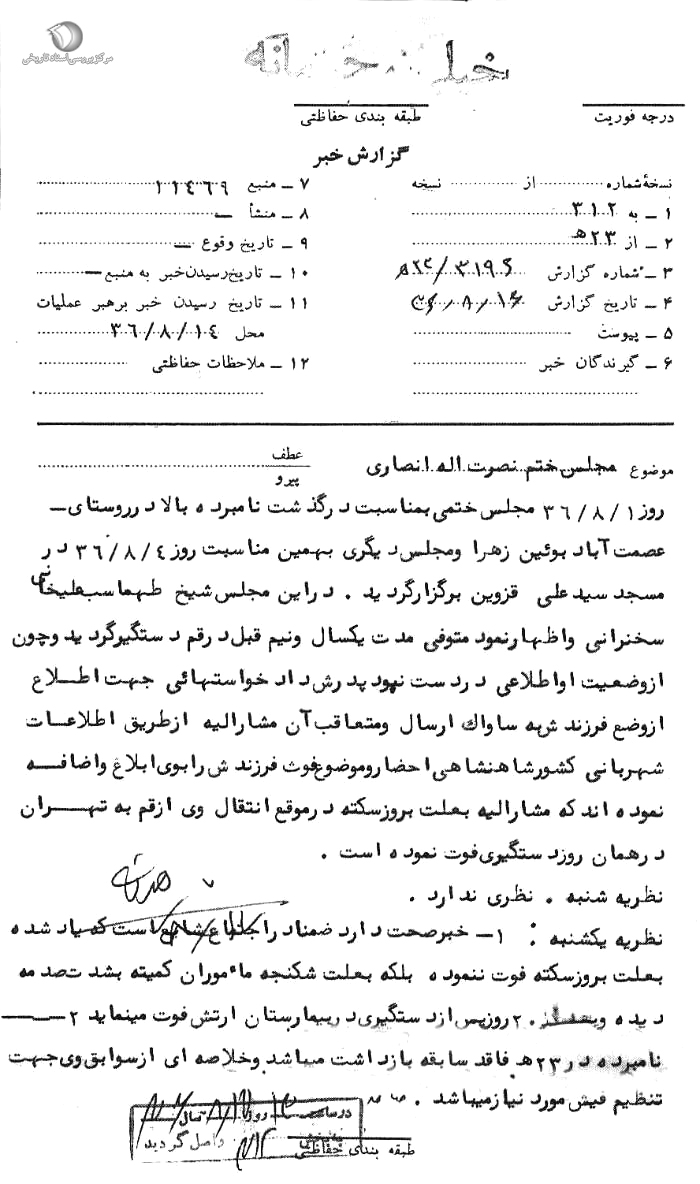 مرکز بررسی اسناد تاریخی
خیلی محرمانه
درجه فوریت
طبقه بندی حفاظتی
گزارش خبر
نسخهٔ شماره از نسخه
۱ ـ به ۳۱۲
۲ ـ از ۲۳ هـ
۳ ـ شماره گزارش
۴ ـ تاریخ گزارش
۵ ـ پیوست
۶ ـ گیرندگان خبر
۷ ـ منبع ۱۱۴۶۹
۸ ـ منشأ ـ
۹ ـ تاریخ وقوع ـ
۱۰ ـ تاریخ رسیدن خبر به منبع ـ
۱۱ ـ تاریخ رسیدن خبر برهبر عملیات
محل ۳۶/۸/۱۴
۱۲ ـ ملاحظات حفاظتی
موضوع مجلس ختم نصرت اله انصاری
عطف
پیرو
روز ۳۶/۸/۱ مجلس ختمی بمناسبت درگذشت نامبرده بالا در روستای ـ
عصمت آباد بوئین زهرا ومجلس دیگری بهمین مناسبت روز ۳۶/۸/۴ در
مسجد سید علی قزوین برگزار گردید . در این مجلس شیخ طهماسب علیخانی
سخنرانی واظهار نمود متوفی مدت یکسال ونیم قبل در قم دستگیر گردید وچون
از وضعیت او اطلاعی در دست نبود پدرش دادخواستهائی جهت اطلاع
از وضع فرزندش به ساواک ارسال ومتعاقب آن مشارالیه از طریق اطلاعات
شهربانی کشور شاهنشاهی احضار وموضوع فوت فرزندش را بوی ابلاغ واضافه
نموده اند که مشارالیه بعلت بروز سکته در موقع انتقال وی از قم به تهران
در همان روز دستگیری فوت نموده است .
نظریه شنبه . نظری ندارد .
نظریه یکشنبه : ۱ـ خبر صحت دارد ضمنا در اجتماع شایع است که یاد شده
بعلت بروز سکته فوت ننموده بلکه بعلت شکنجه مأموران کمیته بشدت صدمه
دیده و ۲۰ روز پس از دستگیری در بیمارستان ارتش فوت مینماید ۲ـ
نامبرده در ۲۳ هـ فاقد سابقه بازداشت میباشد وخلاصه ای از سوابق وی جهت
تنظیم فیش مورد نیاز میباشد .
در ساعت روز
واصل گردید
طبقه بندی حفاظتی